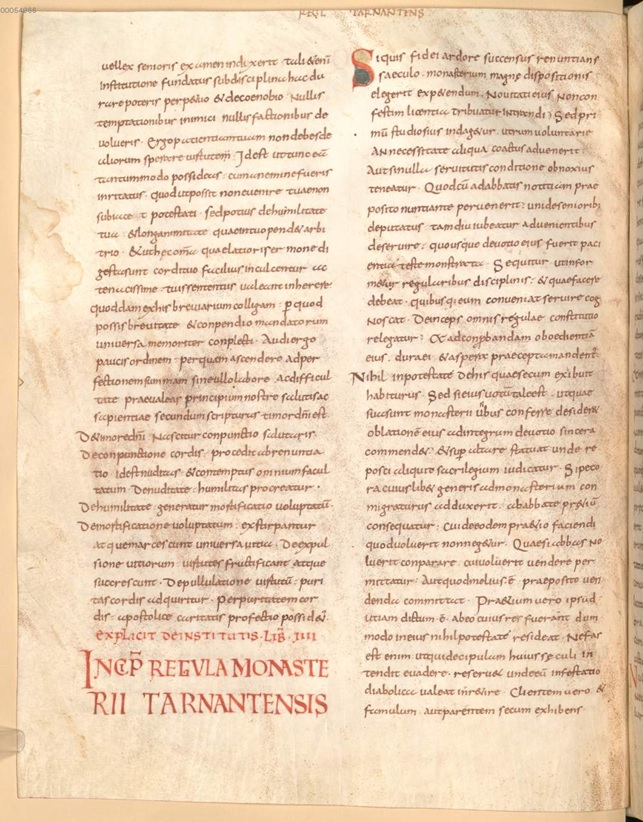 00054966
REGL TARNANTENS
uel lex senioris examen induxerit tali enī
institutione fundatus sub disciplina hac du
rare poteris perpetuo & de coenobio nullis
temptationibus inimici nullis factionibus de
uolueris · Ergo patientiam tuam non debes de
aliorum sperare uirtutem · Idest ut tunc eā
tantummodo possideas · cum a nemine fueris
inritatus · quod ut possit non euenire tuae non
subiace t potestati · sed potius de humilitate
tua · & longanimitate quae in tuo pend& arbi
trio · & ut hec omīa quae latiori sermone di
gesta sunt cordi tuo facilius inculcentur ac
tenacissime tuis sensibus ualeant inherere
quoddam ex his breuiarium colligam · p quod
possis breuitate & conpendio mandatorum
uniuersa memoriter conplecti · Audi ergo
paucis ordinem · per quem ascendere ad per
fectionem summam sine ullo labore ac difficul
tate praeualeas principium nostre salutis ac
sapientiae secundum scripturas timor dnī est
De timore dnī nascitur conpunctio salutaris
De conpunctione cordis procedit abrenuntia
tio id est nuditas & contemptus omnium facul
tatum · De nuditate · humilitas procreatur ·
De humilitate generatur mortificatio uoluptatū
De mortificatione uoluptatum · exstirpantur
atque marcescunt uniuersa uitia · De expul
sione uitiorum · uirtutes fructificant atque
succrescunt · De pullulatione uirtutū · puri
tas cordis adquiritur · Per puritatem cor
dis apostolice caritatis profectio possid&ur
EXPLICIT DE INSTITUTIS · LIB̄ · IIII
INCIP̄ REGULA MONASTE
RII TARNANTENSIS
Si quis fidei ardore succensus renuntians
saeculo · monasterium magne dispositionis
elegerit expetendum · Nouitati eius non con
festim licentia tribuatur intrandi · Sed pri
mū studiosius indagetur · utrum uoluntarie
An necessitate aliqua coactus aduenerit ·
Aut si nulla seruitutis conditione obnoxius
teneatur · Quod cū ad abbatis notitiam prae
posito nuntiante peruenerit · uni de senioribꝰ
deputatus · tamdiu iubeatur aduenientibus
deseruire · quousque deuotio eius fuerit paci
entia teste monstrata · Sequitur ut infor
metur regularibus disciplinis · & quae facere
debeat · quibus qi eum conueniat seruire cog
noscat · Deinceps omnis regulae constitutio
relegatur · Ex ad conprobandam oboedientiā
eius · dura ei & aspera praecepta mandentᷣ
Nihil in potestate de his quae secum exibuit
habiturus · Sed si eius uotū tale est · ut quae
sua sunt monasterii usibus confesse desideret
oblationē eius ad integrum deuotio sincera
commendet · & sup altare statuat unde re
posci aliquid sacrilegium iudicatur · Si peco
ra cuiuslibet generis ad monasterium con
migraturus adduxerit · ab abbate pretiū
consequatur · Cui de eodem praetio faciendi
quod uoluerit non negetur · Quae si abbas no
luerit conparare · cui uoluerit uendere per
mittatur · Aut quod melius ē · praeposito uen
denda committat · Praetium uero ipsud
ut iam dictum ē · ab eo cuius res fuerant dum
modo in eius nihil potestate resideat · Nefas
est enim ut qui decipulam huius seculi in
tendit euadere · reseruet unde eū infestatio
diabolica ualeat inretire · Clientem uero &
famulum · aut parentem secum exhibens